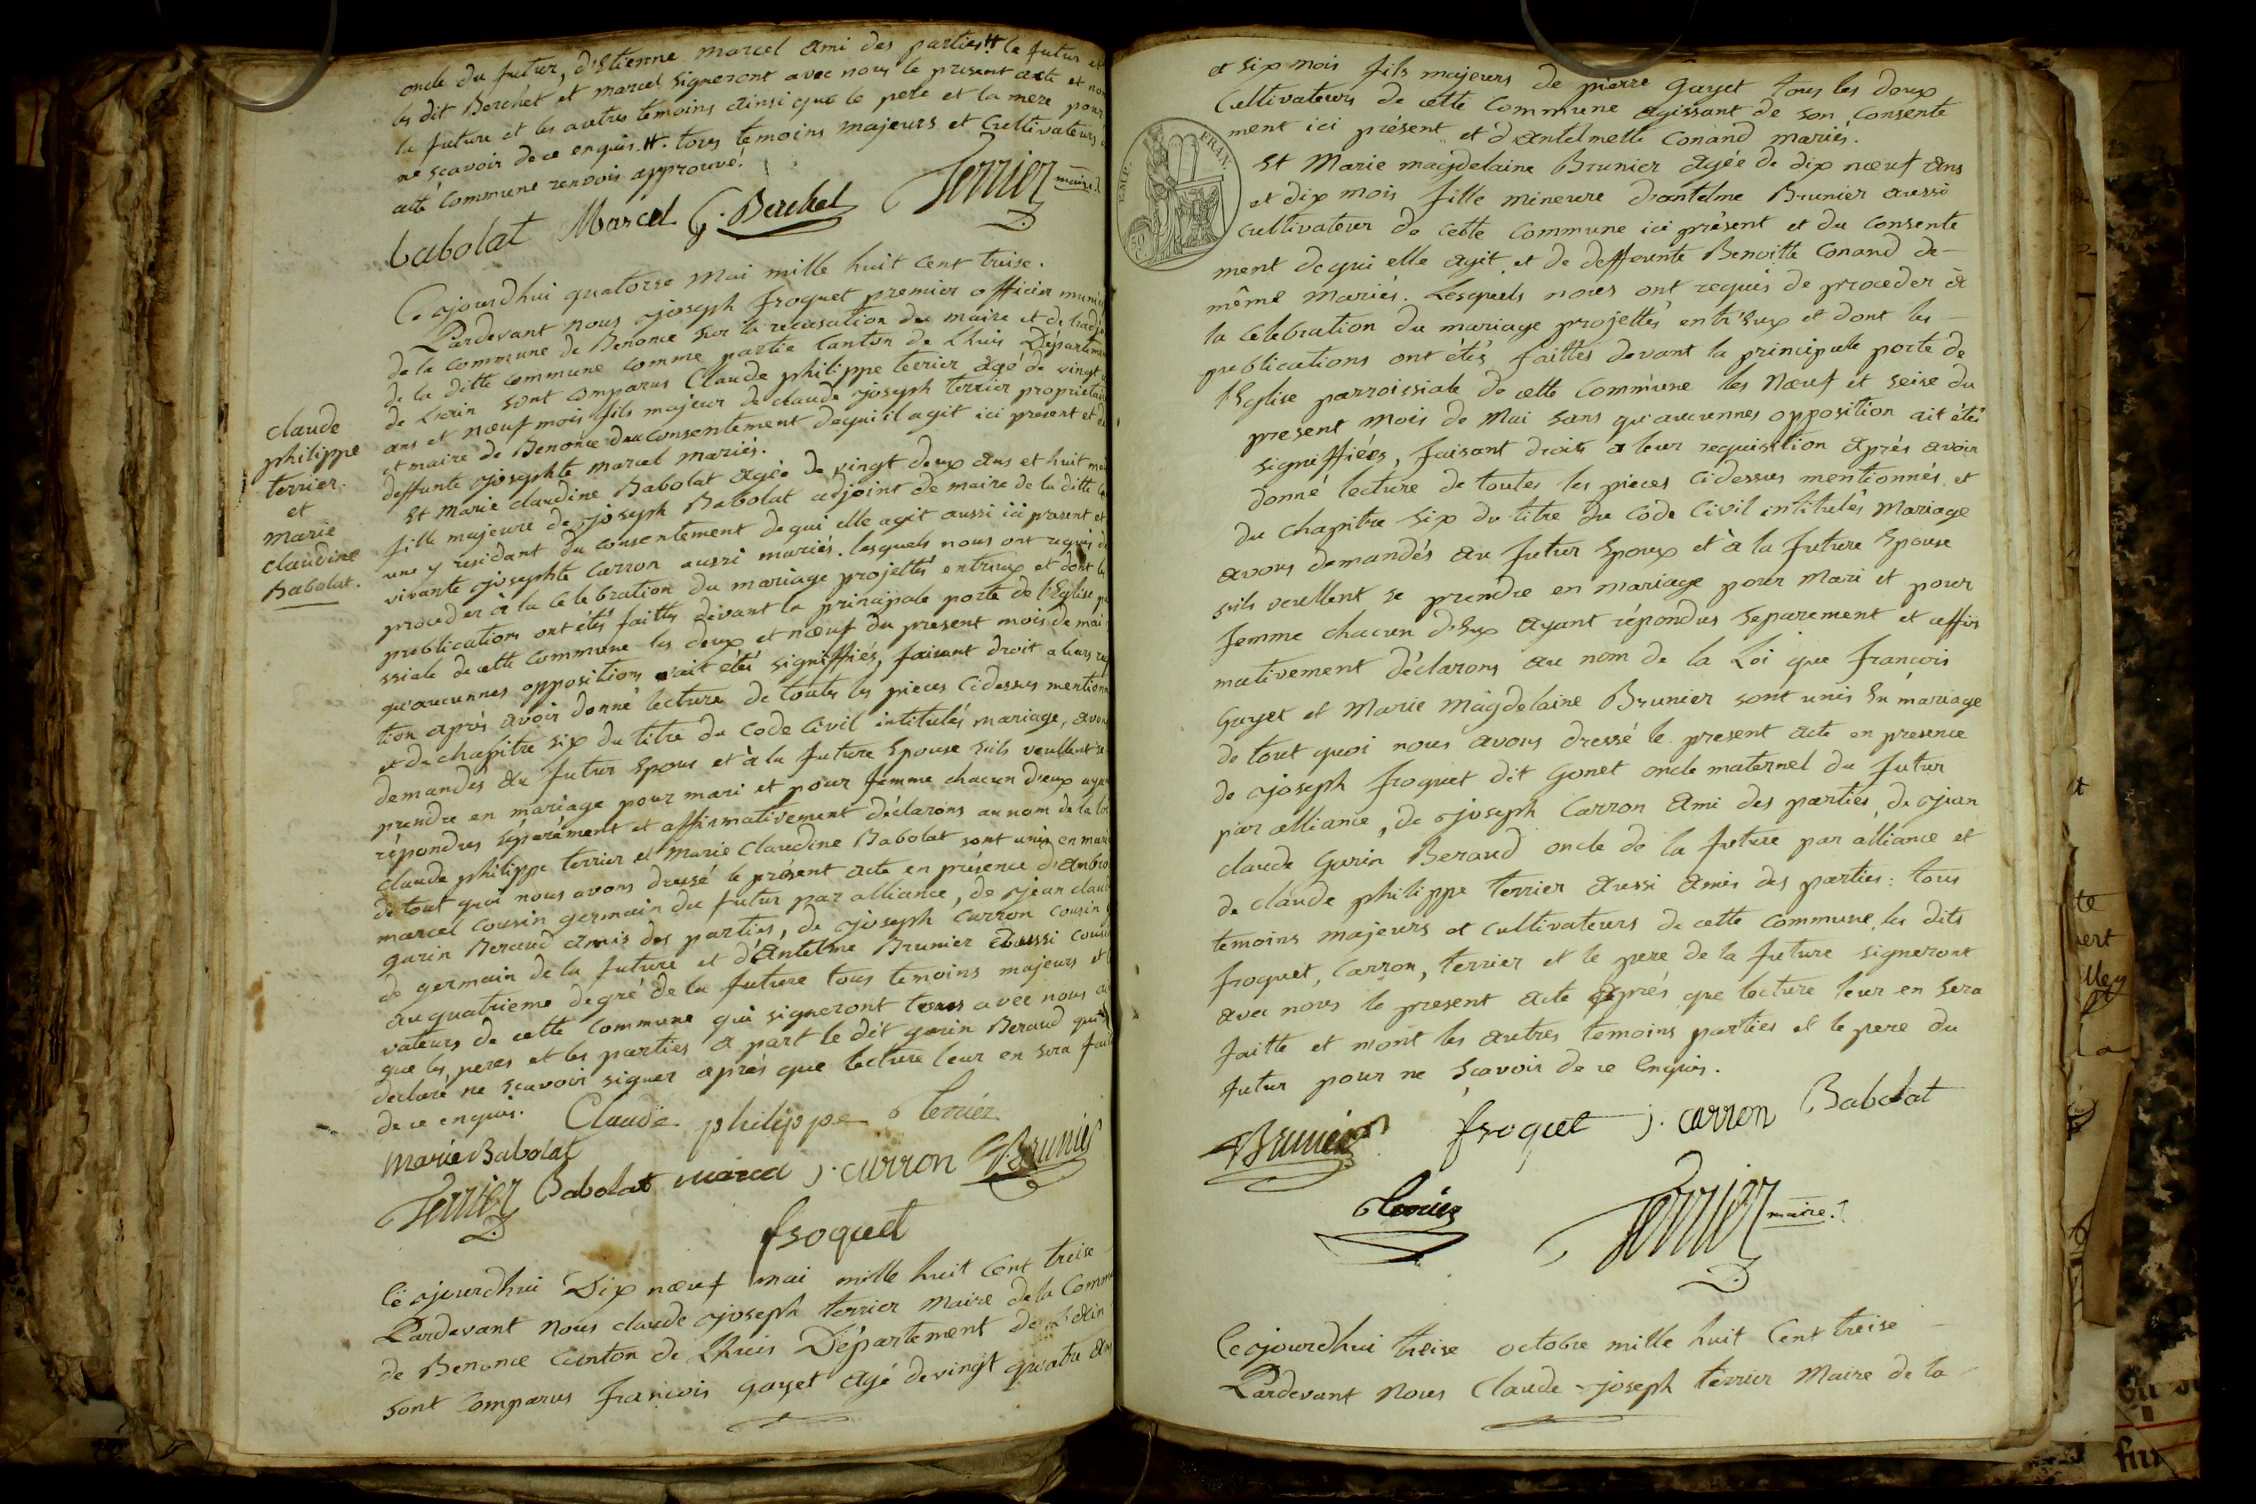 oncle du futur, d'Etienne marcel ami des parties # le futur et
les dit Berchet et marcel signeront avec nous le present acte et non
la future et les autres temoins ainsi que le pere et la mere pour
ne scavoir de ce enquis. #. tous temoins majeurs et Cultivateurs
cette Commune renvois approuvé.
babolat Marcel G. Berchet Terrier maire
Ce ajourdhui quatorse Mai mille huit Cent treise.
Pardevant nous joseph froquet premier officier munici
de la Commune de Benonce sur la recusation du maire et de l'adjo
de la ditte Commune Comme partie Canton de Lhuis Départemen
de L'ain sont Comparus Claude philippe terrier agé de vingt
ans et nœuf mois fils majeur de claude joseph terrier proprietai
et maire de Benonce du consentement de qui il agit ici present et de
deffunte josephte marcel mariés.
claude
philippe
terrier.
et
marie
claudine
Babolat.
Et Marie claudine Babolat agée de vingt deux ans et huit moi
fille majeure de joseph Babolat adjoint de maire de la ditte Co
une y residant du consentement de qui elle agit aussi ici present et
vivante josephte Carron aussi mariés. lesquels nous ont requis de
proceder à la Celebration du mariage projettés entreux et dont les
publications ont étés faittes devant la principale porte de l'Eglise pa
ssiale de cette Commune les deux et nœuf du present mois de mai
qu'aucunnes oppositions ait étés signiffiés, faisant droit a leurs req
tion après avoir donné lecture de toutes les pieces Cidessus mentionn
et du chapitre six du titre du Code Civil intitulés mariage, avons
demandés au futur Epoux et à la future Epouse s'ils veullent se
prendre en mariage pour mari et pour femme chacun d'eux ayan
répondus séparément et affirmativement déclarons au nom de la loi
Claude philippe terrier et Marie Claudine Babolat sont unis en mari
de tout quoi nous avons dressé le présent acte en présence d'Ambroi
marcel Cousin germain du futur par alliance, de jean claude
garin Beraud amis des parties, de joseph Carron cousin
de germain de la future et d'Antelme Brunier aussi cousin
au quatrieme degré de la future tous temoins majeurs et
vateurs de cette Commune qui signeront tous avec nous
que les peres et les parties a part le dit garin Beraud qui
declaré ne scavoir signer après que lecture leur en sera fait
de ce enquis. Claude philippe terrier
Marie Babolat
Terrier Babolat marcel j. carron Brunier
froquet
Ce ajourdhui Dix nœuf mai mille huit Cent treise
Pardevant nous claude joseph terrier Maire de la Commu
de Benonce Canton de Lhuis Département de L'ain
sont Comparus francois gayet agé de vingt quatre an
EMP. FRAN.
et six mois fils majeurs de pierre gayet tous les deux
Cultivateurs de cette Commune agissant de son Consente
ment ici présent et d'antelmette Conand mariés.
Et Marie magdelaine Brunier agée de dix nœuf ans
et dix mois fille mineure d'antelme Brunier aussi
cultivateur de cette Commune ici présent et du Consente
ment de qui elle agit et de deffeunte Benoitte Conand de
même mariés. Lesquels nous ont requis de proceder à
la celebration du mariage projettés entr'Eux et dont les
publications ont étés faittes devant la principale porte de
l'Eglise parroissiale de cette Commune les Nœuf et seise du
present Mois de Mai sans qu'aucunnes opposition ait étés
signiffiées, faisant droit a leur requisition Après avoir
donné lecture de toutes les pieces Cidessus mentionnés et
du chapitre six du titre du Code Civil intitulés Mariage
avons demandés au futur Epoux et à la future Epouse
s'ils veullent se prendre en mariage pour Mari et pour
femme chacun d'Eux ayant répondus Separement et affir
mativement déclarons au nom de la Loi que francois
Gayet et Marie Magdelaine Brunier sont unis En mariage
de tout quoi nous avons dressé le present acte en presence
de joseph froquet dit Gonet oncle maternel du futur
par alliance, de joseph Carron ami des parties, de jean
claude Garin Beraud oncle de la future par alliance et
de claude philippe terrier aussi amis des parties: tous
temoins majeurs et cultivateurs de cette Commune, les dits
froquet, Carron, terrier et le pere de la future signeront
avec nous le present acte après que lecture leur en sera
faitte et non les autres temoins parties et le pere du
futur pour ne scavoir de ce Enquis.
Brunier froquet j. carron Babolat
terrier Terrier maire.
Ce ajourdhui treise octobre mille huit Cent treise
Pardevant Nous Claude joseph terrier Maire de la